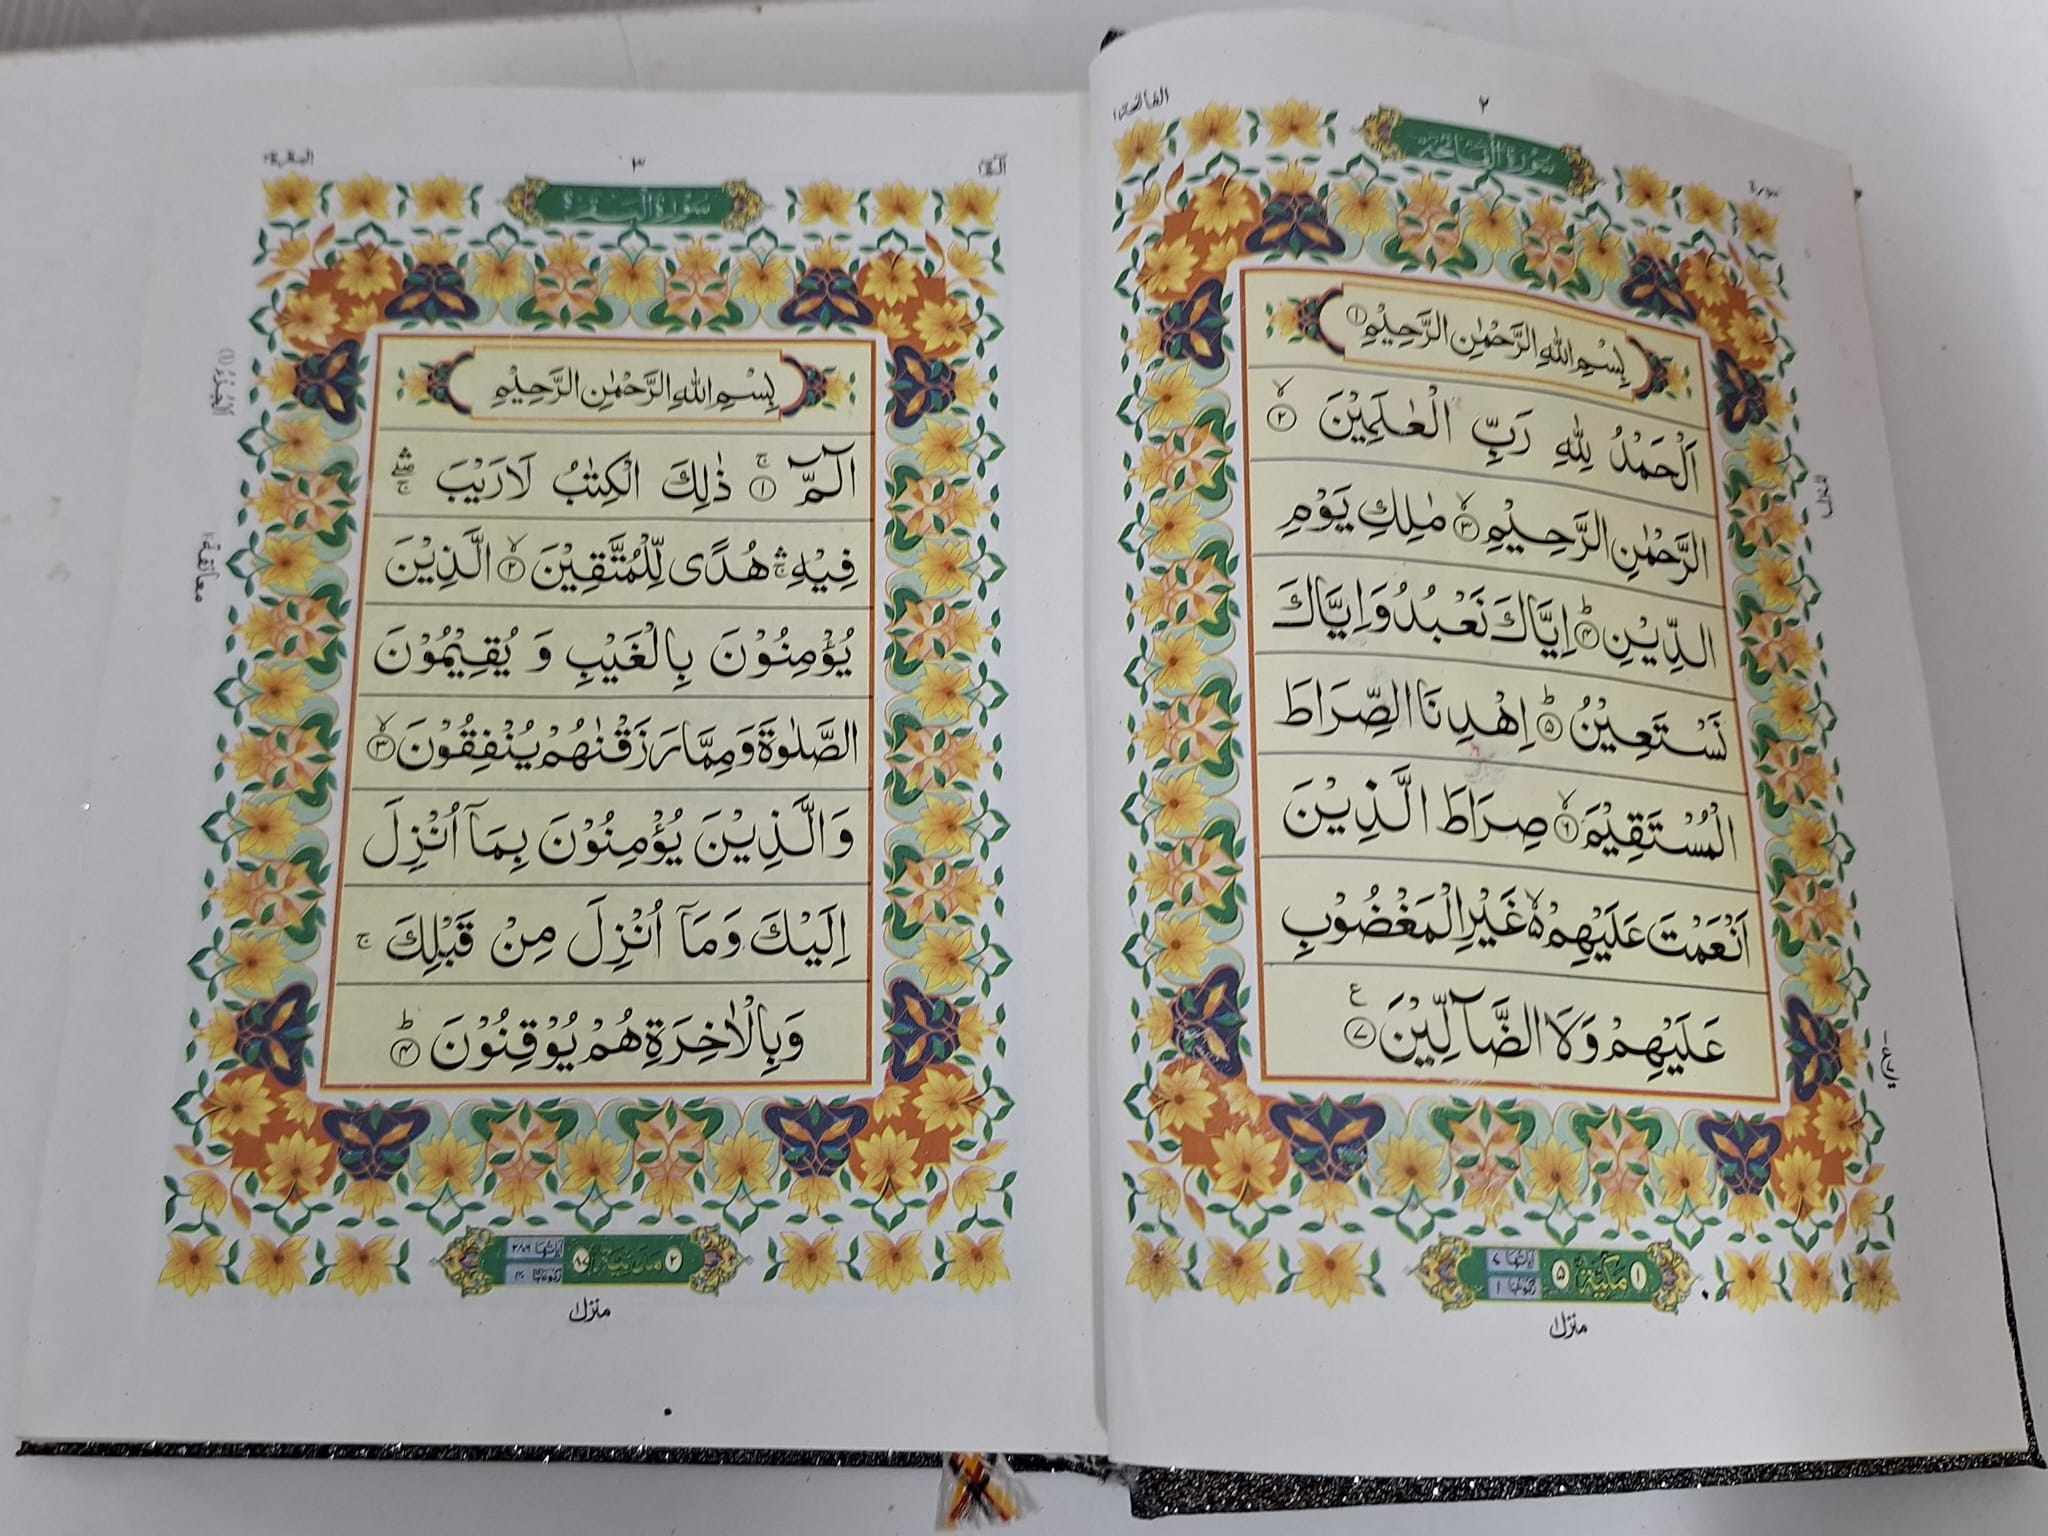 الفاتحة ١
٢
سُوْرَةُ الْفَاتِحَةِ
بِسْمِ اللّٰهِ الرَّحْمٰنِ الرَّحِيْمِ ۝١
اَلْحَمْدُ لِلّٰهِ رَبِّ الْعٰلَمِيْنَ ۝٢ۙ
الرَّحْمٰنِ الرَّحِيْمِ ۝٣ۙ مٰلِكِ يَوْمِ
الدِّيْنِ ۝٤ؕ اِيَّاكَ نَعْبُدُ وَاِيَّاكَ
نَسْتَعِيْنُ ۝٥ؕ اِهْدِنَا الصِّرَاطَ
الْمُسْتَقِيْمَ ۝٦ۙ صِرَاطَ الَّذِيْنَ
اَنْعَمْتَ عَلَيْهِمْ ۙ۬ غَيْرِ الْمَغْضُوْبِ
عَلَيْهِمْ وَلَا الضَّآلِّيْنَ ۝٧ ع
١ مَكِّيَّةٌ ٥ اٰيَاتُهَا ٧ رُكُوْعُهَا ١
منزل ١
البقرة ٢
٣
الٓمّٓ ١
سُوْرَةُ الْبَقَرَةِ
بِسْمِ اللّٰهِ الرَّحْمٰنِ الرَّحِيْمِ
الٓمّٓ ۝١ۚ ذٰلِكَ الْكِتٰبُ لَا رَيْبَ ۛۖۚ
فِيْهِ ۛۚ هُدًى لِّلْمُتَّقِيْنَ ۝٢ۙ الَّذِيْنَ
يُؤْمِنُوْنَ بِالْغَيْبِ وَ يُقِيْمُوْنَ
الصَّلٰوةَ وَمِمَّا رَزَقْنٰهُمْ يُنْفِقُوْنَ ۝٣ۙ
وَالَّذِيْنَ يُؤْمِنُوْنَ بِمَآ اُنْزِلَ
اِلَيْكَ وَمَآ اُنْزِلَ مِنْ قَبْلِكَ ۚ
وَبِالْاٰخِرَةِ هُمْ يُوْقِنُوْنَ ۝٤ؕ
اَلْجُزْءُ (١)
معانقة ١
٢ مَدَنِيَّةٌ ٨٧ اٰيَاتُهَا ٢٨٦ رُكُوْعَاتُهَا ٤٠
منزل ١